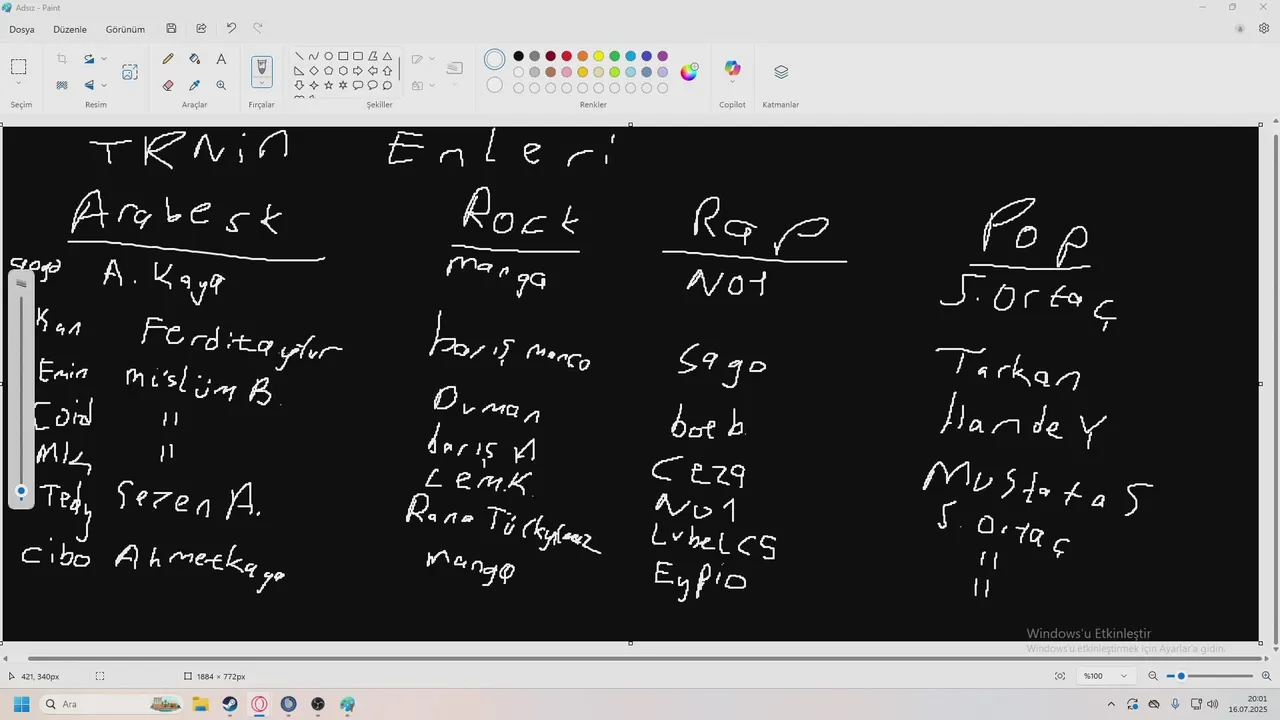 Adsız - Paint
Dosya Düzenle Görünüm
Seçim Resim Araçlar Fırçalar Şekiller Renkler Copilot Katmanlar
TRNin Enleri
Arabesk Rock Rap Pop
A. Kaya manga No1 S. Ortaç
Kan Ferditayfur barış manço Sago Tarkan
Emin müslüm B. Duman boe b. Hande Y
" barış A Ceza Mustafa S
" Cem K. No1 S. Ortaç
Tedy Sezen A. Rana Türkyılmaz LvbelC5 "
Cibo Ahmetkaya manga Eypio "
Windows'u Etkinleştir
Windows'u etkinleştirmek için Ayarlar'a gidin.
421, 340px 1884 × 772px %100
Ara 20:01
16.07.2025